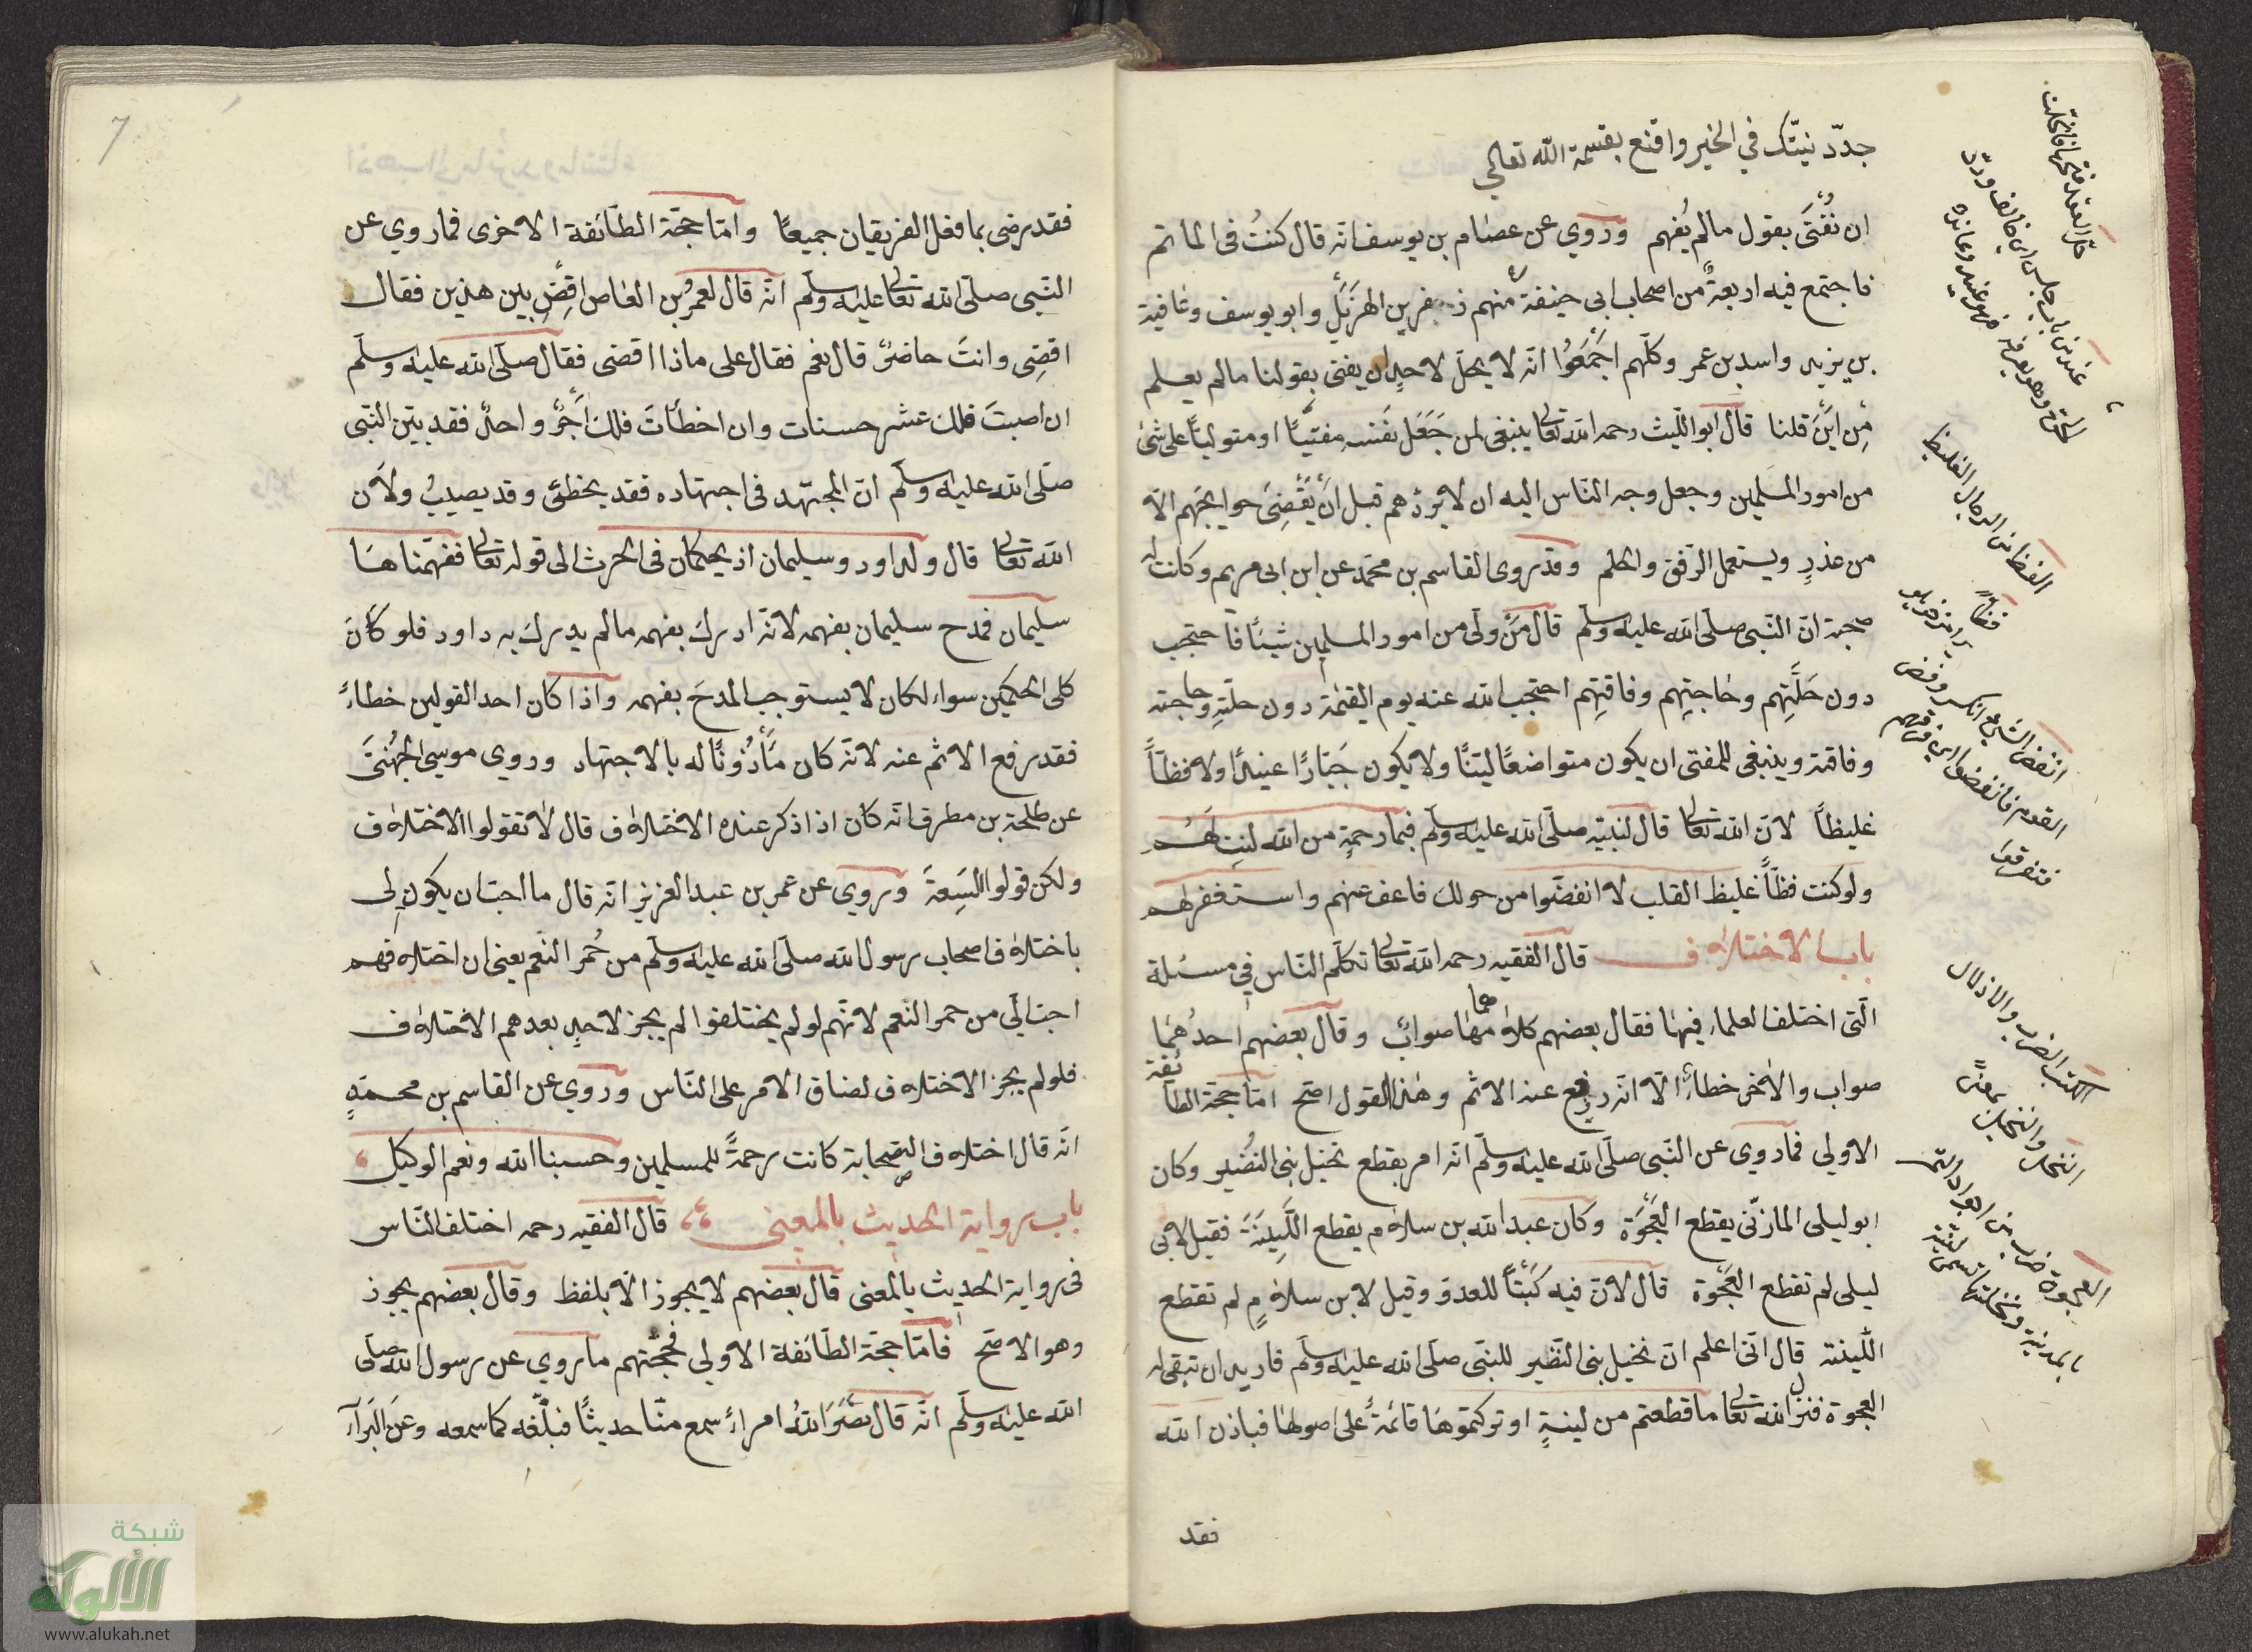 جدّد نيّتك في الخير واقنع بقسمة الله تعالى
ان نُفْتَى بقول مالم يُفهم وروي عن عصام بن يوسف انّه قال كنتُ فى الماتم
فاجتمع فيه اربعةٌ من اصحاب ابى حنيفة منهم زفر بن الهزَيْلِ وابو يوسف وعافية
بن يزيد واسد بن عمر وكلّهم اجْمَعُوُا انّه لا يحلّ لاحدٍ ان يفتى بقولنا مالم يعلم
مِن اَيْنَ قلنا قال ابو اللّيث رحمه الله تعالى ينبغى لمن جَعَل نَفسه مفتيًا او متوليًا على شئ
من امور المسلمين وجعل وجه النّاس اليه ان لا يردّهم قبل اَنْ يَقْضِىَ حوايجهم الاّ
من عذرٍ ويستعمل الرّفق والحلم وقد روى القاسم بن محمّد عن ابن ابى مريم وكانت له
صحبة انّ النّبى صلّى الله عليه وسلّم قال مَنْ ولّى من امور المسلمين شيئًا فاحتجب
دون خَلَّتِهم وحاجتِهم وفاقتِهم احتجب الله عنه يوم القيمة دون خلّتِهِ وحاجته
وفاقته وينبغى للمفتى ان يكون متواضعًا ليّنًا ولا يكون جَبّارًا عنيدًا ولا فظّاً
غليظاً لانّ الله تعالى قال لنبيّه صلّى الله عليه وسلّم فبما رحمةٍ من الله لنتِ لهم
ولو كنت فظّاً غليظ القلب لا انفضّوا من حولك فاعف عنهم واستغفر لهم
باب الاختلاف قال الفقيه رحمه الله تعالى تكلّم النّاس في مسئلة
الّتى اختلف العلماء فيها فقال بعضهم كلاهما صوابٌ وقال بعضهم احدُهمَا
صواب والاخر خطاءٌ الاّ انّه رفع عنه الاثم وهذا القول اصحّ امّا حجّة الطائفة
الاولى فما روي عن النّبى صلّى الله عليه وسلّم انّه امر بقطع نخيل بنى النُضَير وكان
ابو ليلى المازنّى يقطع العَجْوَة وكان عبد الله بن سلام يقطع اللَّيِنَةَ فقيل لابى
ليلى لم تقطع العَجْوة قال لانّ فيه كَبْتًا للعدوّ وقيل لابن سلامٍ لم تقطع
اللّينة قال انّى اعلم انّ نخيل بنى النّظير للنبّى صلّى الله عليه وسلّم فاريد ان تبقى له
العجوة فنزل الله تعالى ما قطعتم من لينةٍ او تركتموهَا قائمةً على اصولها فباذن الله
فقد
حلّ العقدة فتحها فانحلّت
الفظ من الرجال الغليظ
انفضّ الشئ انكسر وفضض
القوم فانفضوا اى فرّقهم
فتفرقوا
الكبت الصرف والاذلال
النخل والنخيل بمعنًى
العجوة ضرب من اجواد التمر
بالمدينة ونخلتها تسمى لينة
فقد رضى بما فعل الفريقان جميعًا وامّا حجّة الطّائفة الاخرى فما روي عن
النّبى صلّى الله تعالى عليه وسلّم انّه قال لعمرُ بن العاص اقِضِ بين هذين فقال
اقضِى وانتَ حاضرٌ قال نعم فقال على ماذا اقضى فقال صلّى الله عليه وسلّم
ان اصبتَ فلك عشر حسنات وان اخطأتَ فلك اَجْرٌ واحدٌ فقد بيّن النّبى
صلّى الله عليه وسلّم انّ المجتهد فى اجتهاده فقد يخطئ وقد يصيبُ ولانّ
الله تعالى قال ولداود وسليمان اذ يحكمان فى الحرث الى قوله تعالى ففهّمناهَا
سليمان فمدح سليمان بفهمه لانّه ادرك بفهمه مالم يدرك به داود فلو كانَ
كلى الحكمين سواء لكان لا يستوجب المدحَ بفهمه واذا كان احد القولين خطاءً
فقد رفع الاثم عنه لانّه كان مَأذُونًا له بالاجتهاد وروي موسى الجُهَنىَّ
عن طلحة بن مطرف انّه كان اذا ذكر عنده الاختلاف قال لا تقولوا الاختلاف
ولكن قولوا السَعِةَ وروي عن عمر بن عبد العزيز انّه قال ما احبّ ان يكون لِى
باختلاف اصحاب رسول الله صلّى الله عليه وسلّم من حُمرِ النّعم يعنى ان اختلافهم
احبّ الَى من حمر النّعم لانّهم لو لم يختلفوا لم يجز لاحدٍ بعدهم الاختلاف
فلو لم يجز الاختلاف لضاق الامر على النّاس وروي عن القاسم بن محمّدٍ
انّه قال اختلاف الصّحابة كانت رحمةً للمسلمين وحسبنا الله ونعم الوكيل
باب رواية الحديث بالمعنى قال الفقيه رحمه اختلف النّاس
فى رواية الحديث بالمعنى قال بعضهم لا يجوز الاّ بلفظ وقال بعضهم يجوز
وهو الاصّح فامّا حجّة الطّائفة الاولى فحجّتهم ما روي عن رسول الله صلّى
الله عليه وسلّم انّه قال نضَّرَ اللهُ امراءً سمع منّا حديثًا فبلّغه كما سمعه وعن البَراءِ
7
شبكة
الألوكة
www.alukah.net